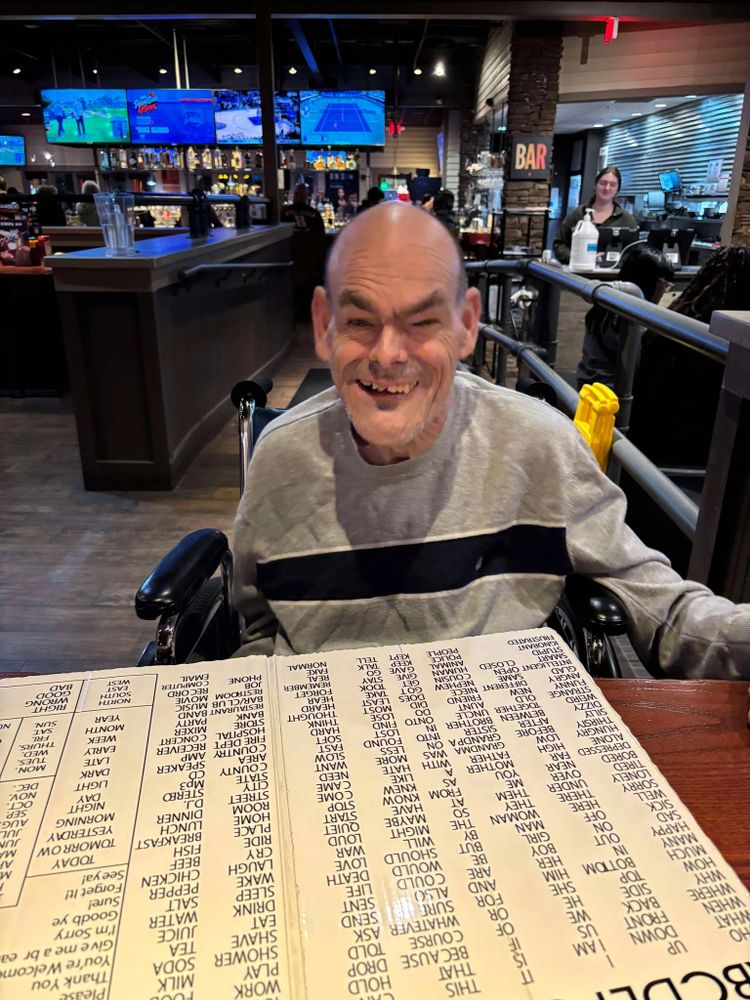 BAR
BCDEF
WHAT
WHEN
WHERE
WHY
HOW
MUCH
MANY
HAPPY
SAD
SICK
SORRY
LONELY
TIRED
DEPRESSED
FINE
HUNGRY
SILLY
DIZZY
STRANGE
FUNNY
ANGRY
GLAD
INTELLIGENT
SMART
STUPID
FRUSTRATED
IGNORANT
UP
DOWN
FRONT
BACK
SIDE
TOP
BOTTOM
IN
OUT
ON
OFF
HERE
THERE
OVER
UNDER
NEAR
FAR
HIGH
LOW
AFTER
BEFORE
BETWEEN
TOGETHER
NEW
OLD
DIFFERENT
SAME
OPEN
CLOSED
I AM
I US
WE ME
HE
SHE
HIM
HER
BOY
GIRL
MAN
WOMAN
THEY
THEM
ME
YOU
FATHER
MOTHER
GRANDMA
GRANDPA
BROTHER
SISTER
AUNT
UNCLE
NIECE
NEPHEW
COUSIN
HUMAN
ANIMAL
POLICE
PEOPLE
IT IS
OF IF
FOR OR
AND
ARE
BE
BUT
BY
THE
SO
AT
FROM
AS A
WITH
WAS
IN ON
INTO
ONTO
DID
DO
DOES
GOT
GET
GIVE
GAVE
KEEP
KEPT
THIS
THAT
BECAUSE
COURSE
WHATEVER
SURE
ALSO
COULD
WOULD
SHOULD
WILL
MIGHT
MAYBE
HAVE
KNOW
KNEW
LIKE
HATE
MORE
LESS
FOUND
FIND
LOSE
LOST
LEAST
MOST
TOOK
TAKE
STAY
GO
TALK
TELL
CAN
HOLD
DROP
TOLD
ASK
SEND
SENT
LIFE
DEATH
LOVE
WAR
LOUD
QUIET
START
STOP
COME
CAME
NEED
WANT
SLOW
FAST
SOFT
HARD
THINK
THOUGHT
HEARD
FORGET
REMEMBER
REAL
FAKE
NORMAL
WORK
PLAY
SHOWER
SHAVE
EAT
DRINK
SLEEP
WAKE
LAUGH
CRY
RIDE
PLACE
HOME
ROOM
STREET
CITY
STATE
COUNTY
AREA
COUNTRY
FIRE DEPT.
HOSPITAL
STORE
BANK
RESTAURANT
BAR/CLUB
RESTROOM
JOB
PHONE
FOOD
MILK
SODA
TEA
JUICE
WATER
SALT
PEPPER
CHICKEN
BEEF
FISH
BREAKFAST
LUNCH
DINNER
D.J.
STEREO
MP3
CD
AMP
RECEIVER
SPEAKER
CONCERT
MIXER
PARTY
BAND
MUSIC
RECORD
MOVIE
COMPUTER
EMAIL
Please
Thank You
You're Welcome
Give me a br ea
I'm Sorry
Goodb ye
Sure!
Forget It!
See ya!
TODAY
TOMORROW
YESTERDAY
NIGHT
DAY
LIGHT
DARK
LATE
EARLY
WEEK
MONTH
YEAR
NORTH
SOUTH
EAST
WEST
MAY
JUNE
JULY
AUG.
SEP
OCT
NOV.
DEC.
MON.
TUES.
WED.
THURS.
FRI.
SAT.
SUN.
RIGHT
WRONG
GOOD
BAD